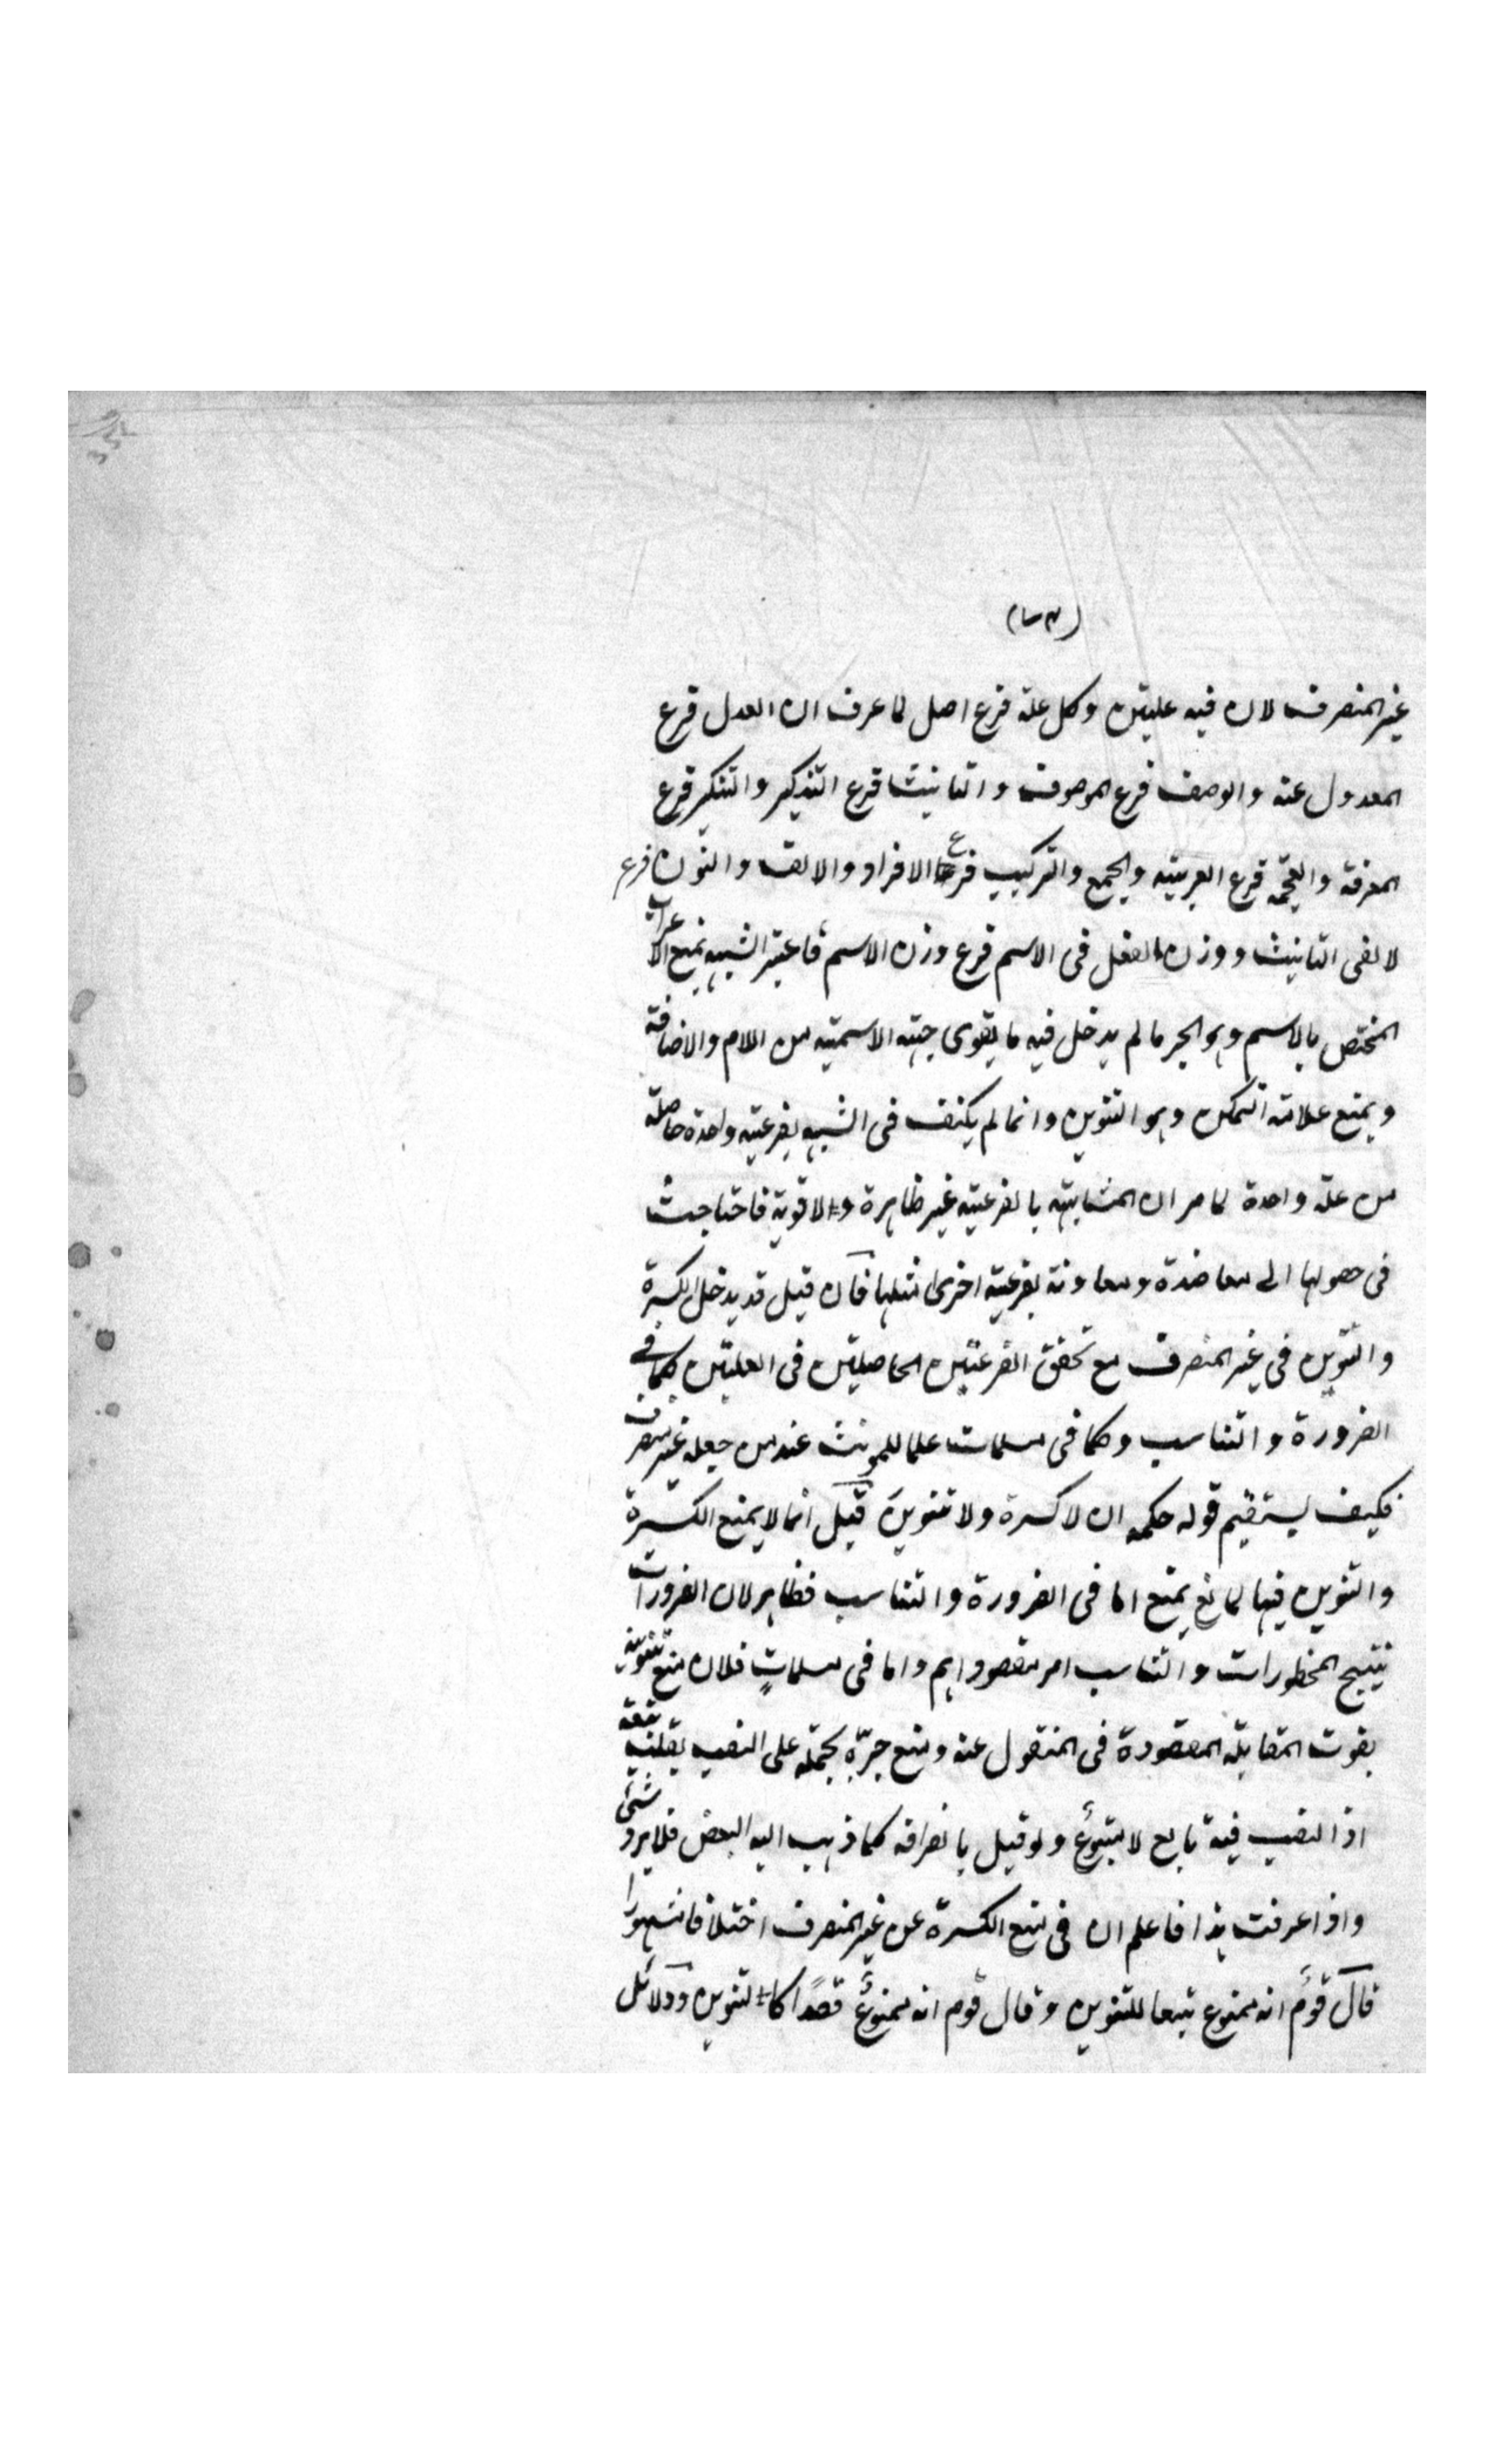 غیر المنصرف لان فیه علیتین وکل علة فرع اصل لما عرف ان العدل فرع
المعدول عنه والوصف فرع الموصوف والتانیث فرع التذکیر والتنکیر فرع
المعرفة والعجمة فرع العربیته والجمع والترکیب فرع الافراد والالف والنون فرع
لالفی التانیث ووزن الفعل فی الاسم فرع وزن الاسم فاعتبر الشبیه بمنع الاعراب
المختص بالاسم وهو الجر مالم یدخل فیه ما یقوی جهته الاسمیته من اللام والاضافة
ویمنع علامته التمکن وهو التنوین وانما لم یکتف فی الشبه بفرعیته واحدة حاصلة
من علة واحدة لما مر ان المشابهته بالفرعیته غیر ظاهرة ولا قویة فاحتاجت
فی حصولها الی معاضدة ومعاونة بفرعیته اخری مثلها فان قیل قد یدخل الکسرة
والتنوین فی غیر المنصرف مع تحقق الفرعتین الحاصلیتین فی العلیتین کما فی
الضرورة والتناسب وکما فی مسلمات علما للمونث عند من جعله غیر منصرف
فکیف یستقیم قوله حکمه ان لا کسرة ولا تنوین قیل انما لا یمنع الکسرة
والتنوین فیها لمانع یمنع اما فی الضرورة والتناسب فظاهر لان الضرورات
تبیح المحظورات والتناسب امر مقصود اهم واما فی مسلماتٍ فلان منع تنوینه
یفوت المقابلة المقصودة فی المنقول عنه ومنع جرّه بحمله علی النصب
اذ النصب فیه تابع لا متبوع ولو قیل بانصرافه کما ذهب الیه البعض فلا یرد شئ
واذا عرفت هذا فاعلم ان فی منع الکسرة عن غیر المنصرف اختلافا مشهورا
قال قومٌ انه ممنوع تبعا للتنوین وقال قوم انه ممنوعٌ قصدًا کالتنوین ودلائل